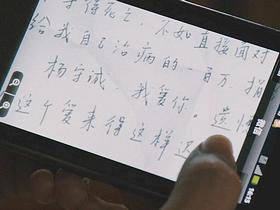 得死亡，不如直接面对
给我自己治病的一百万，捐
杨守诚，我爱你。遗憾
这个爱来得这样迟